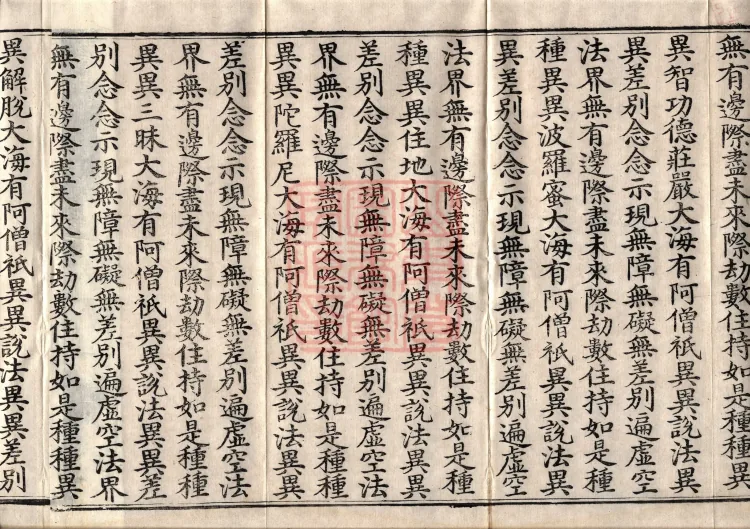 無有邊際盡未來際劫數住持如是種種異
異智功德莊嚴大海有阿僧祇異異說法異
異差別念念示現無障無礙無差別遍虛空
法界無有邊際盡未來際劫數住持如是種
種異異波羅蜜大海有阿僧祇異異說法異
異差別念念示現無障無礙無差別遍虛空
法界無有邊際盡未來際劫數住持如是種
種異異住地大海有阿僧祇異異說法異異
差別念念示現無障無礙無差別遍虛空法
界無有邊際盡未來際劫數住持如是種種
異異陀羅尼大海有阿僧祇異異說法異異
差別念念示現無障無礙無差別遍虛空法
界無有邊際盡未來際劫數住持如是種種
異異三昧大海有阿僧祇異異說法異異差
別念念示現無障無礙無差別遍虛空法界
無有邊際盡未來際劫數住持如是種種異
異解脫大海有阿僧祇異異說法異異差別